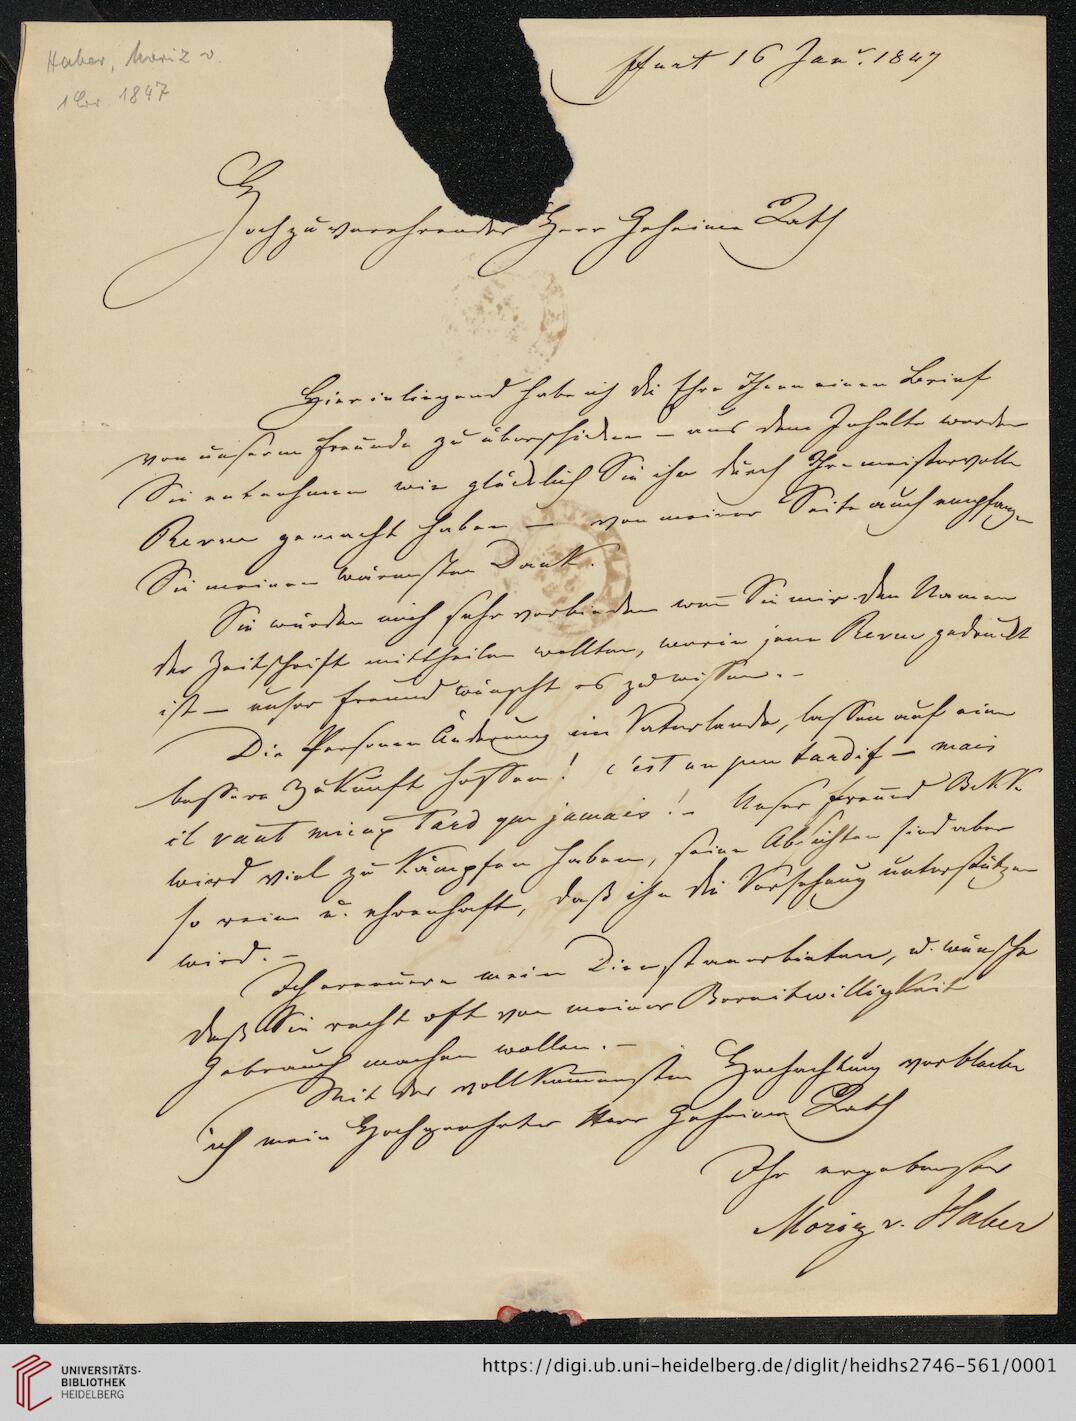 Haber, Moriz v.
1 Br. 1847
ffurt 16 Janr. 1847
Hochzuverehrender Herr Geheimer Rath
Hier inliegend habe ich die Ehre Ihnen einen Brief
von unserm Freunde zu überschicken – aus dem Inhalte werden
Sie entnehmen wie glücklich Sie ihn durch Ihre meistervolle
Revue gemacht haben – von meiner Seite auch empfangen
Sie meinen wärmsten Dank.
Sie würden mich sehr verbinden wen̄ Sie mir den Namen
der Zeitschrift mittheilen wollten, worin jene Revue gedruckt
ist – unser Freund wünscht es zu wissen. –
Die Personen Änderung im Vaterlande, lassen auf eine
bessere Zukunft hoffen! c'est un peu tardif – mais
il vaut mieux tard que jamais! – Unser Freund Bekk
wird viel zu kämpfen haben, seine Absichten sind aber
so rein u. ehrenhaft, daß ihn die Vorsehung unterstützen
wird. –
Ich erneuere mein Dienstanerbieten, u. wünsche
daß Sie recht oft von meiner Bereitwilligkeit
Gebrauch machen wollen. –
Mit der vollkom̄ensten Hochachtung verbleibe
ich mein Hochgeehrter Herr Geheimer Rath
Ihr ergebenster
Moriz v. Haber
UNIVERSITÄTS-
BIBLIOTHEK
HEIDELBERG
https://digi.ub.uni-heidelberg.de/diglit/heidhs2746-561/0001